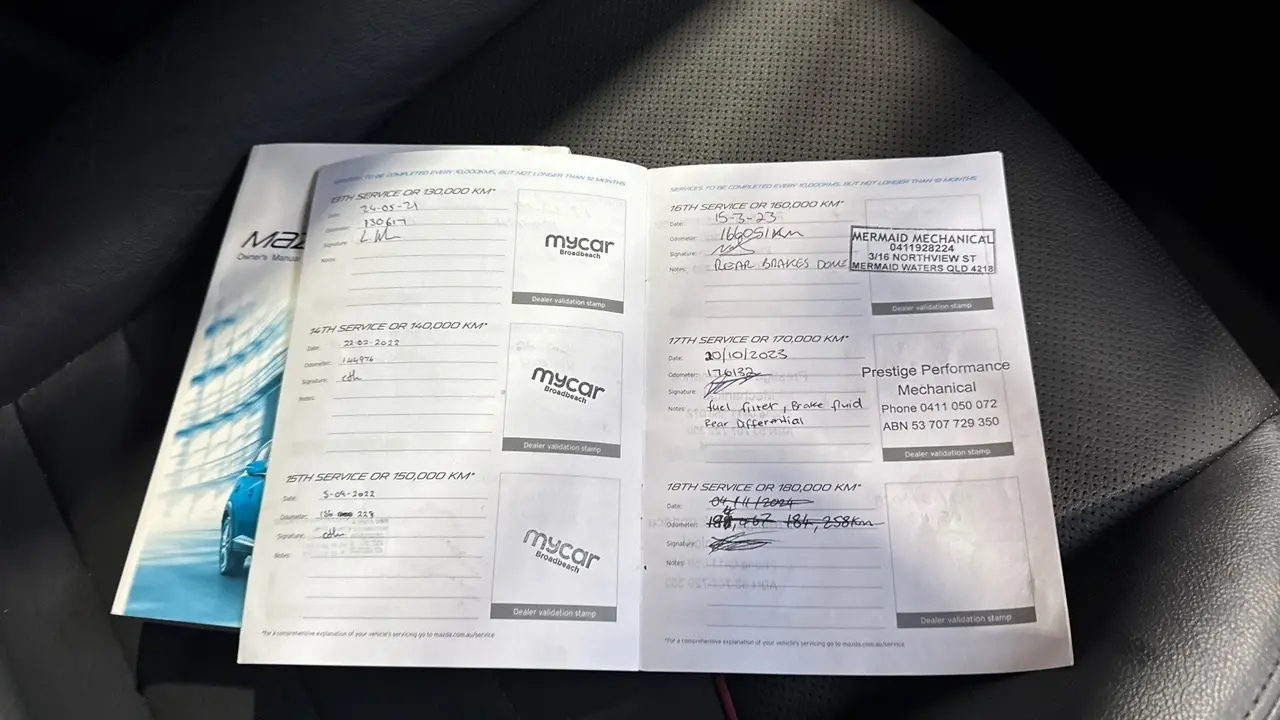 MAZ
Owner's Manual
SERVICES TO BE COMPLETED EVERY 10,000KMS, BUT NOT LONGER THAN 12 MONTHS
13TH SERVICE OR 130,000 KM*
Date: 24-05-21
Odometer: 130617
Signature:
Notes:
mycar
Broadbeach
Dealer validation stamp
14TH SERVICE OR 140,000 KM*
Date: 22-02-2022
Odometer: 144976
Signature:
Notes:
mycar
Broadbeach
Dealer validation stamp
15TH SERVICE OR 150,000 KM*
Date: 5-09-2022
Odometer: 156 228
Signature:
Notes:
mycar
Broadbeach
Dealer validation stamp
*For a comprehensive explanation of your vehicle's servicing go to mazda.com.au/service
SERVICES TO BE COMPLETED EVERY 10,000KMS, BUT NOT LONGER THAN 12 MONTHS
16TH SERVICE OR 160,000 KM*
Date: 15-3-23
Odometer: 166051KM
Signature:
Notes: REAR BRAKES DONE
MERMAID MECHANICAL
0411928224
3/16 NORTHVIEW ST
MERMAID WATERS QLD 4218
Dealer validation stamp
17TH SERVICE OR 170,000 KM*
Date: 20/10/2023
Odometer: 176132
Signature:
Notes: fuel filter, Brake fluid
Rear Differential
Prestige Performance
Mechanical
Phone 0411 050 072
ABN 53 707 729 350
Dealer validation stamp
18TH SERVICE OR 180,000 KM*
Date: 04/11/2024
Odometer: 184,258km
Signature:
Notes:
Dealer validation stamp
*For a comprehensive explanation of your vehicle's servicing go to mazda.com.au/service